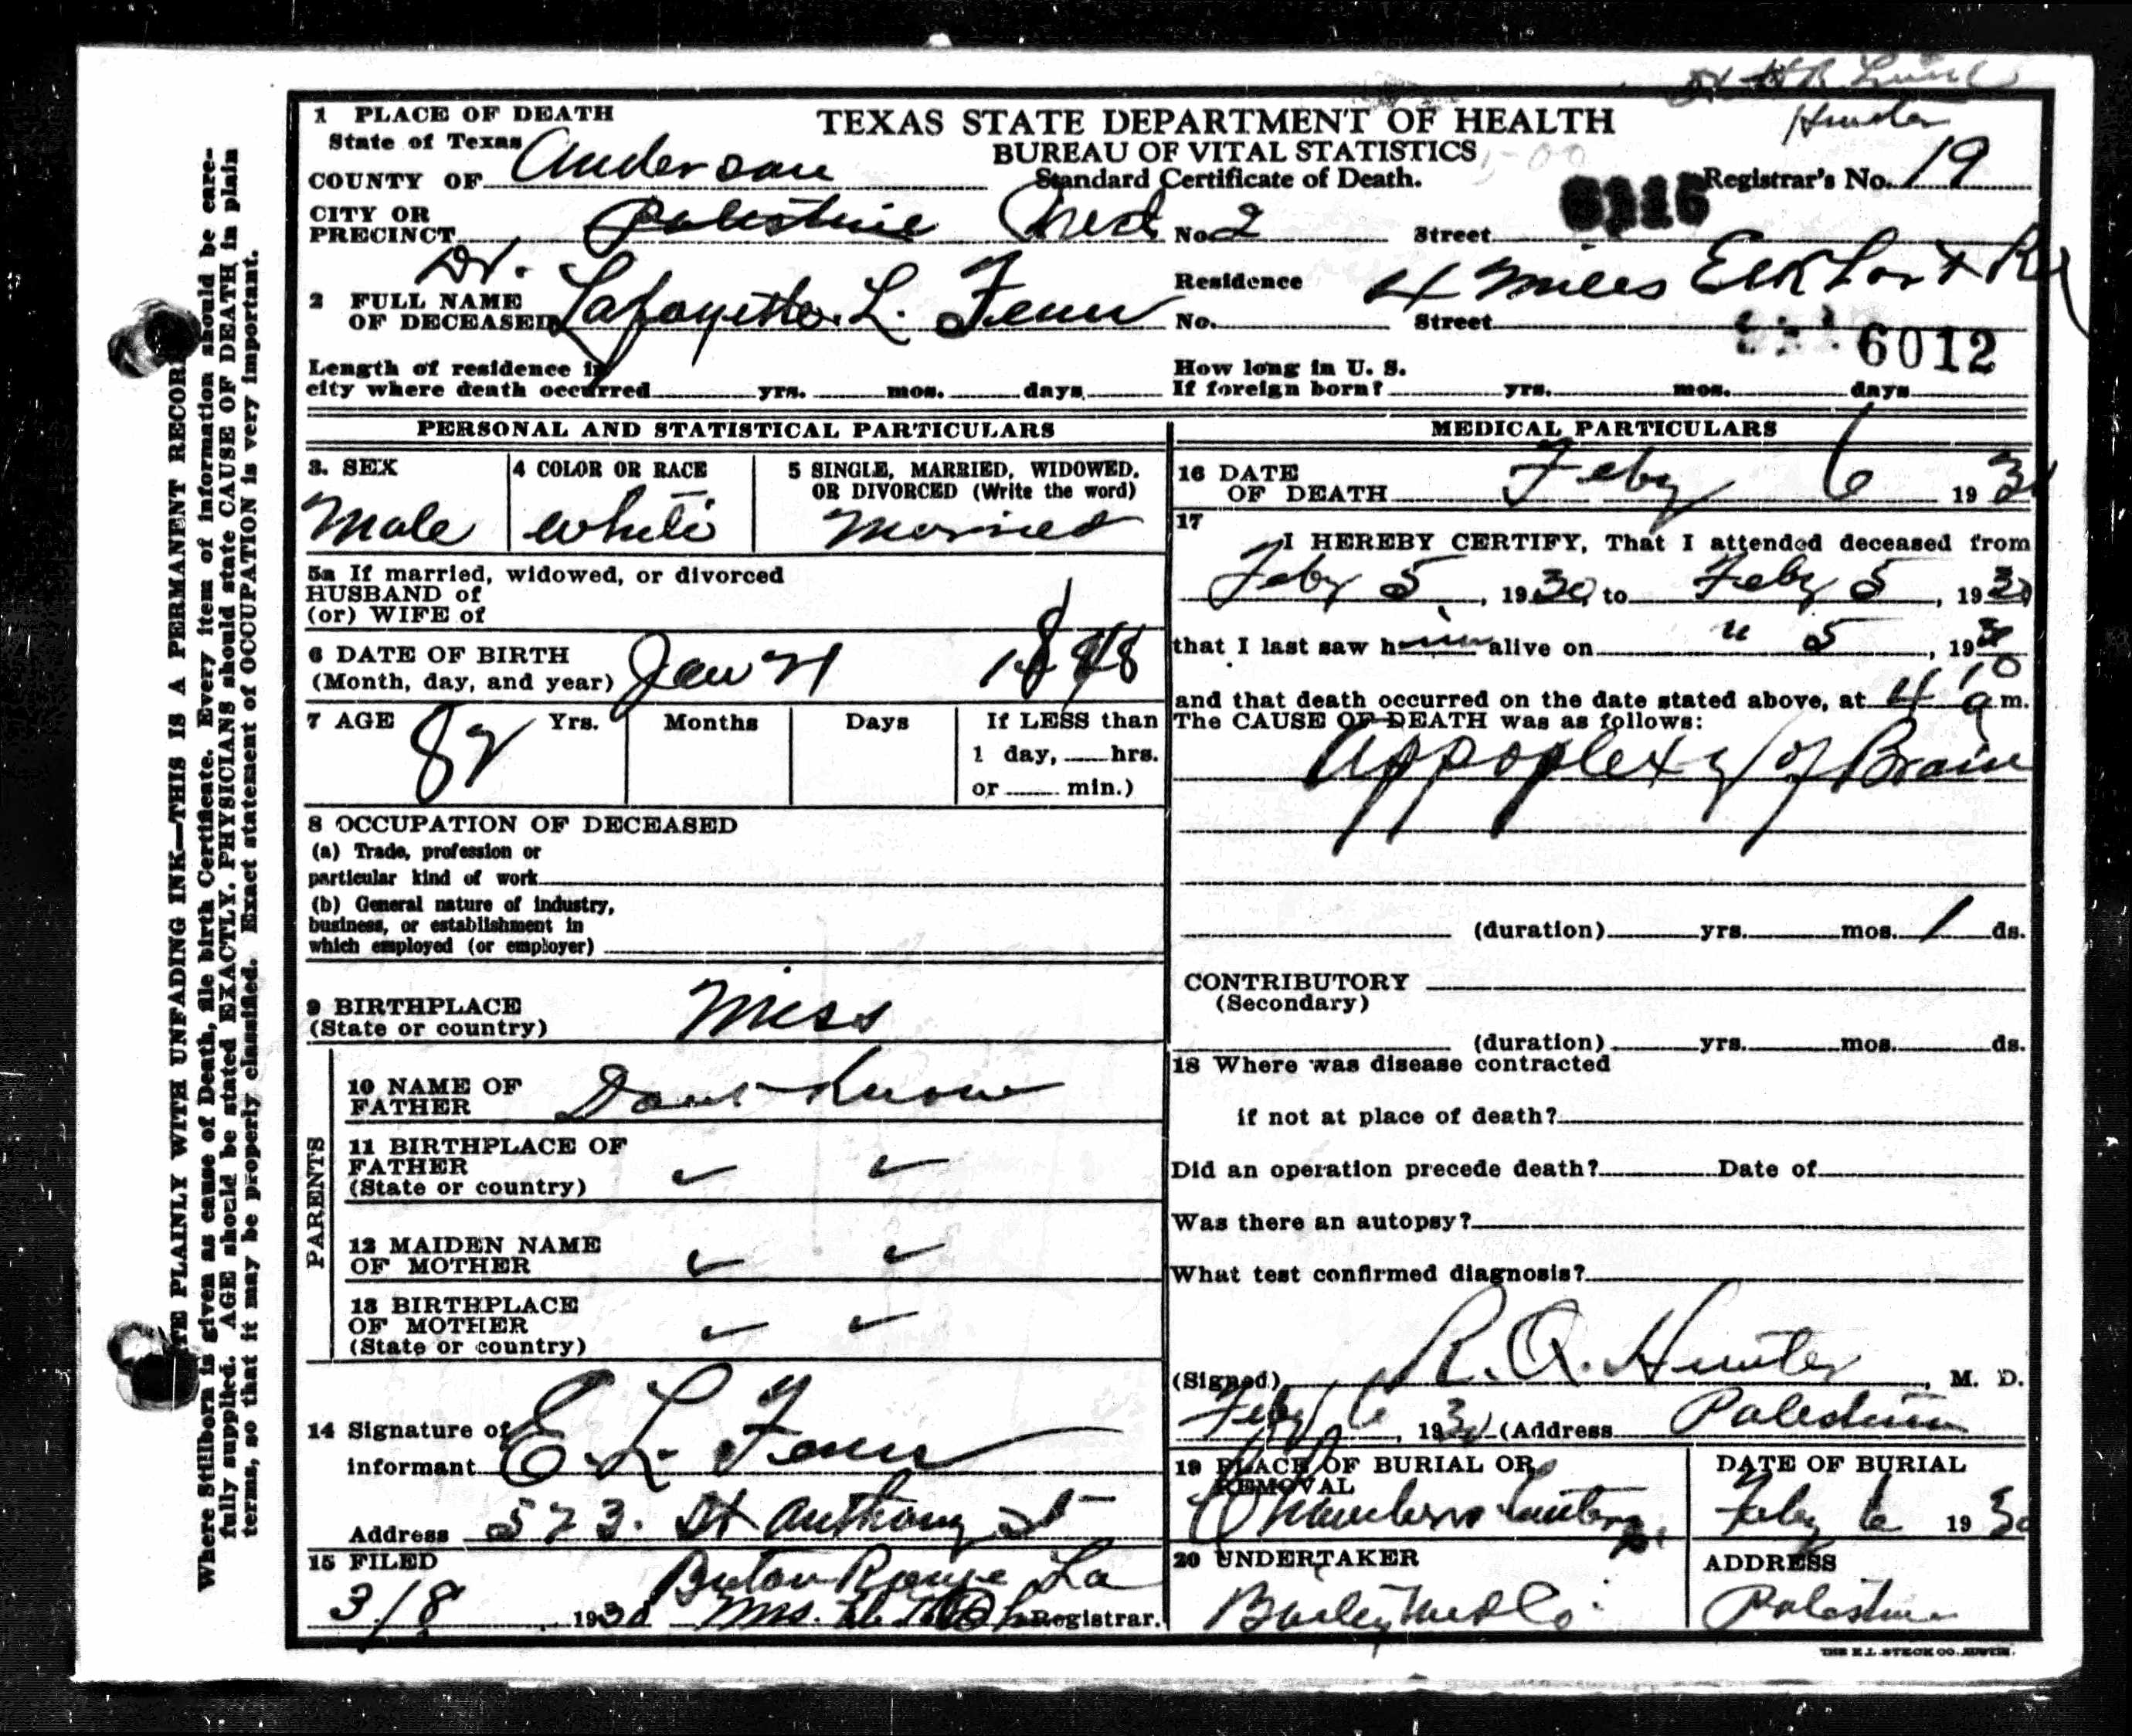 Hunter
1 PLACE OF DEATH
State of Texas
COUNTY OF Anderson
TEXAS STATE DEPARTMENT OF HEALTH
BUREAU OF VITAL STATISTICS
Standard Certificate of Death.
Registrar's No. 19
CITY OR
PRECINCT Palestine Prect No 2 Street
Residence 4 Miles Elk Rd
Dr.
2 FULL NAME
OF DECEASED Lafayette L. Fenn
No. Street
6012
Length of residence in
city where death occurred yrs. mos. days
How long in U. S.
If foreign born? yrs. mos. days
PERSONAL AND STATISTICAL PARTICULARS
3. SEX
Male
4 COLOR OR RACE
White
5 SINGLE, MARRIED, WIDOWED,
OR DIVORCED (Write the word)
Married
5a If married, widowed, or divorced
HUSBAND of
(or) WIFE of
6 DATE OF BIRTH
(Month, day, and year) Jan 21 1848
7 AGE 82 Yrs. Months Days If LESS than
1 day, hrs.
or min.)
8 OCCUPATION OF DECEASED
(a) Trade, profession or
particular kind of work
(b) General nature of industry,
business, or establishment in
which employed (or employer)
9 BIRTHPLACE
(State or country) Miss
PARENTS
10 NAME OF
FATHER Dont Know
11 BIRTHPLACE OF
FATHER
(State or country)
12 MAIDEN NAME
OF MOTHER
13 BIRTHPLACE
OF MOTHER
(State or country)
14 Signature of
informant E L Fenn
Address 523. St Anthony St
Baton Rouge La
15 FILED
3/8 1930 Mrs. Registrar.
MEDICAL PARTICULARS
16 DATE
OF DEATH Feby 6 1930
17
I HEREBY CERTIFY, That I attended deceased from
Feby 5, 1930, to Feby 5, 1930
that I last saw him alive on " 5, 1930
and that death occurred on the date stated above, at 4 10 a m.
The CAUSE OF DEATH was as follows:
Appoplexy of Brain
(duration) yrs. mos. 1 ds.
CONTRIBUTORY
(Secondary)
(duration) yrs. mos. ds.
18 Where was disease contracted
if not at place of death?
Did an operation precede death? Date of
Was there an autopsy?
What test confirmed diagnosis?
(Signed) R. Q. Hunter, M. D.
Feby 6, 1930 (Address Palestine
19 PLACE OF BURIAL OR
REMOVAL
DATE OF BURIAL
Feby 6 1930
20 UNDERTAKER
ADDRESS
Palestine
THE E.L. STECK CO. AUSTIN.
TE PLAINLY WITH UNFADING INK—THIS IS A PERMANENT RECOR
Where Stillborn is given as cause of Death, file birth Certificate. Every item of information should be care-
fully supplied. AGE should be stated EXACTLY. PHYSICIANS should state CAUSE OF DEATH in plain
terms, so that it may be properly classified. Exact statement of OCCUPATION is very important.